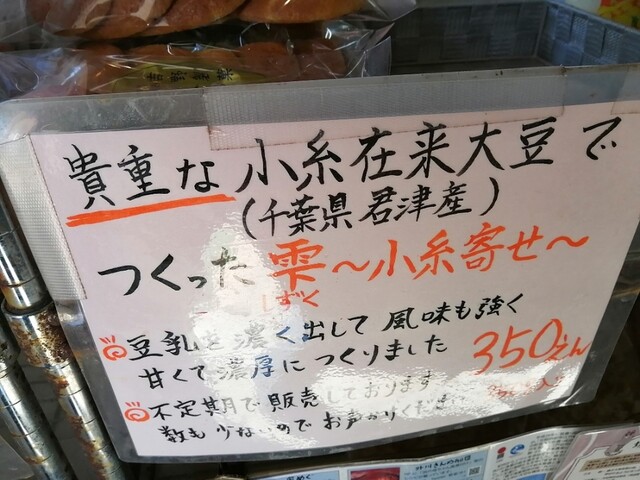 貴重な小糸在来大豆で
(千葉県君津産)
つくった 雫～小糸寄せ～
しずく
豆乳を濃く出して風味も強く
甘くて濃厚につくりました
350えん
不定期で販売しております
数も少ないのでお声かけくだ